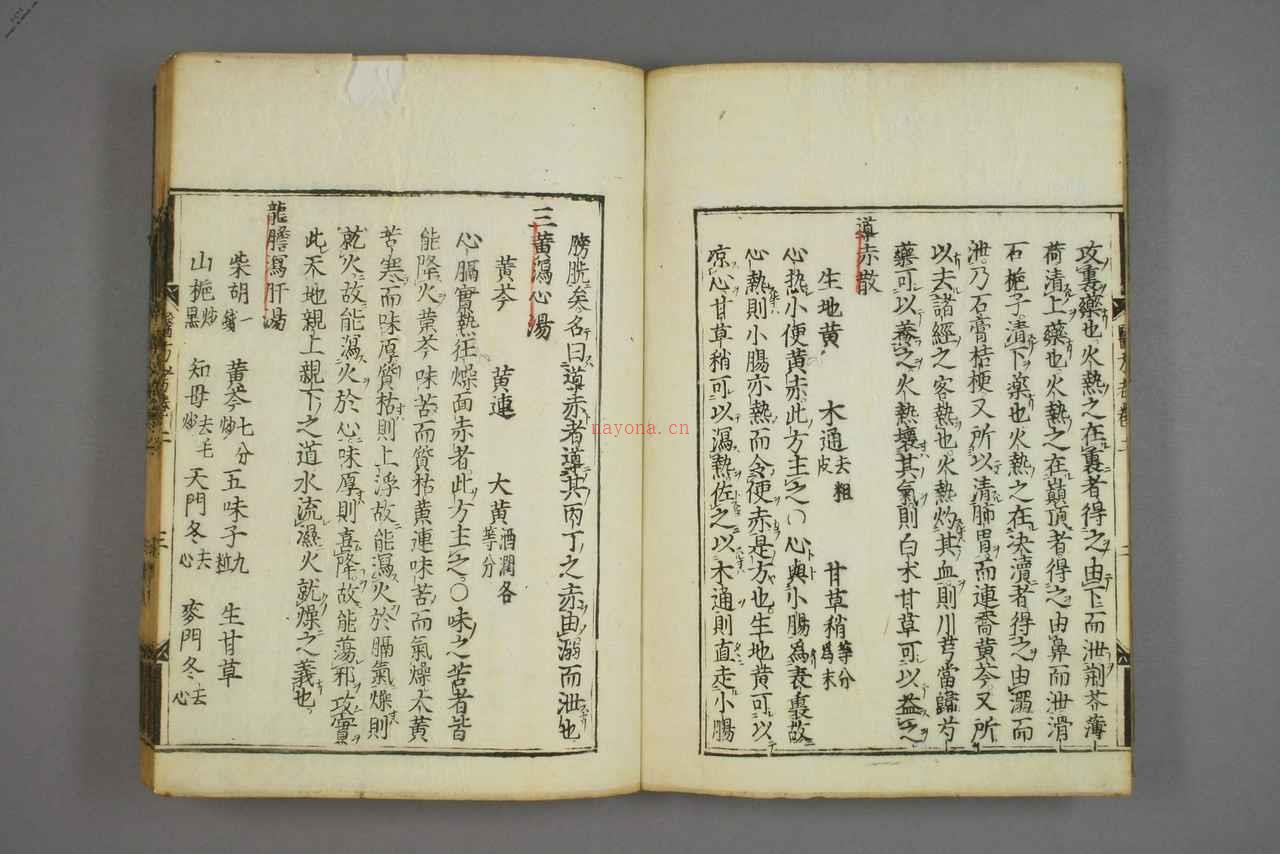 攻裏藥也火熱之在裏者得之由下而泄荆芥薄
荷清上藥也火熱之在巔頂者得之由鼻而泄滑
石梔子清下藥也火熱之在决瀆者得之由溺而
泄乃石膏桔梗又所以清肺胃而連喬黄芩又所
以去諸經之客熱也火熱灼其血則川芎當歸芍
藥可以養之火熱壊其氣則白术甘草可以益之
導赤散
生地黄 木通去粗皮 甘草稍等分爲末
心热小便黄赤此方主之○心與小腸爲表裏故
心熱則小腸亦熱而令便赤是方也生地黄可以
凉心甘草稍可以瀉熱佐之以木通則直走小腸
膀胱矣名曰導赤者導其丙丁之赤由溺而泄也
三黄瀉心湯
黄芩 黄連 大黄酒潤各等分
心膈實熱狂燥面赤者此方主之○味之苦者皆
能降火黄芩味苦而質枯黄連味苦而氣燥大黄
苦寒而味厚質枯則上浮故能瀉火於膈氣燥則
就火故能瀉火於心味厚則喜降故能蕩邪攻實
此天地親上親下之道水流濕火就燥之義也
龍膽瀉肝湯
柴胡一錢 黄芩七分炒 五味子九粒 生甘草
山梔炒黑 知母去毛炒 天門冬去心 麥門冬去心
nayona.cn